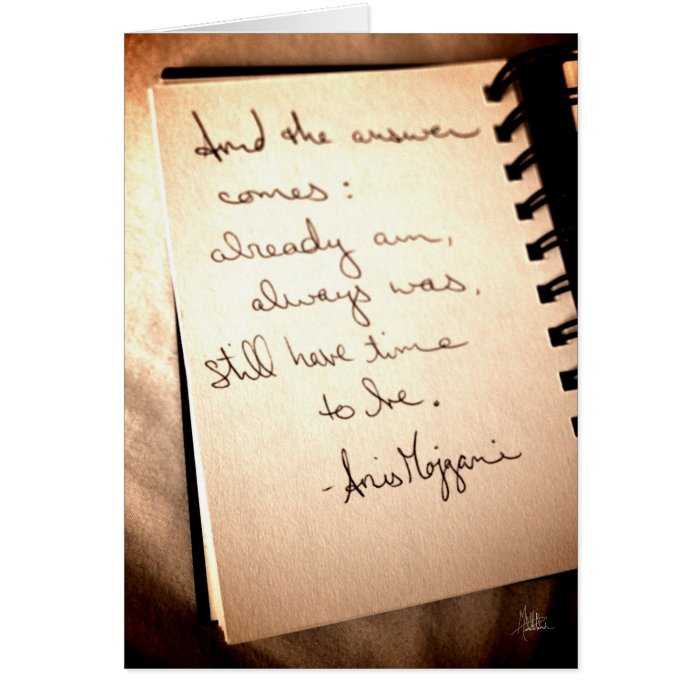 And the answer
comes:
already am,
always was,
still have time
to be.
- Anis Mojgani